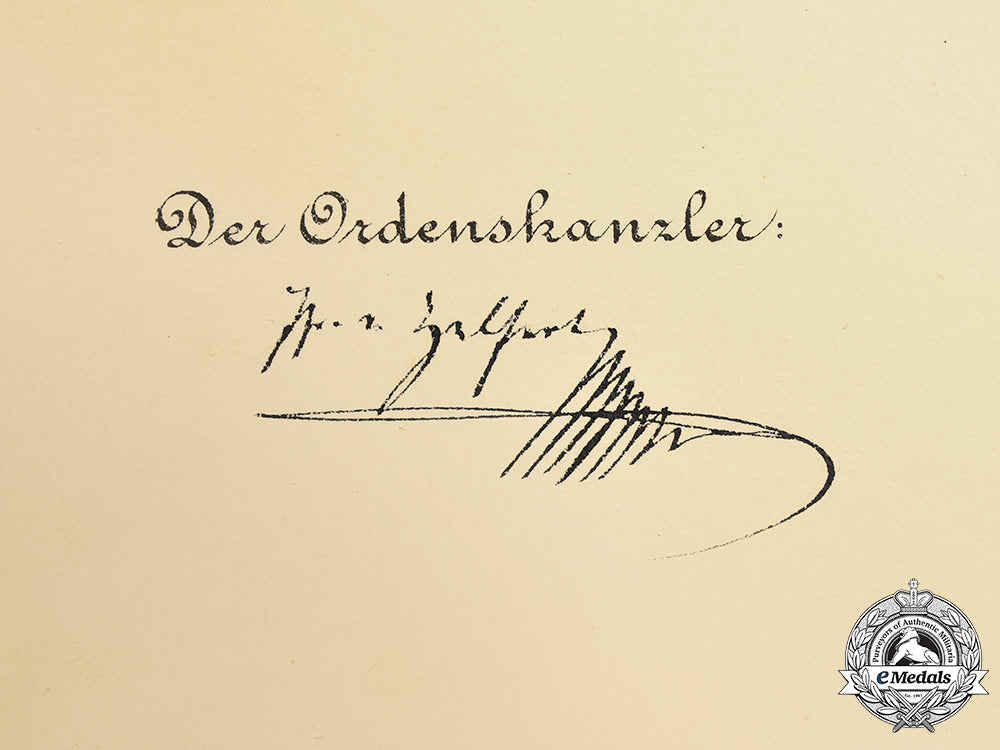 Der Ordenskanzler:
Fr. v. Helfert
Purveyors of Authentic Militaria
eMedals
Est. 1967